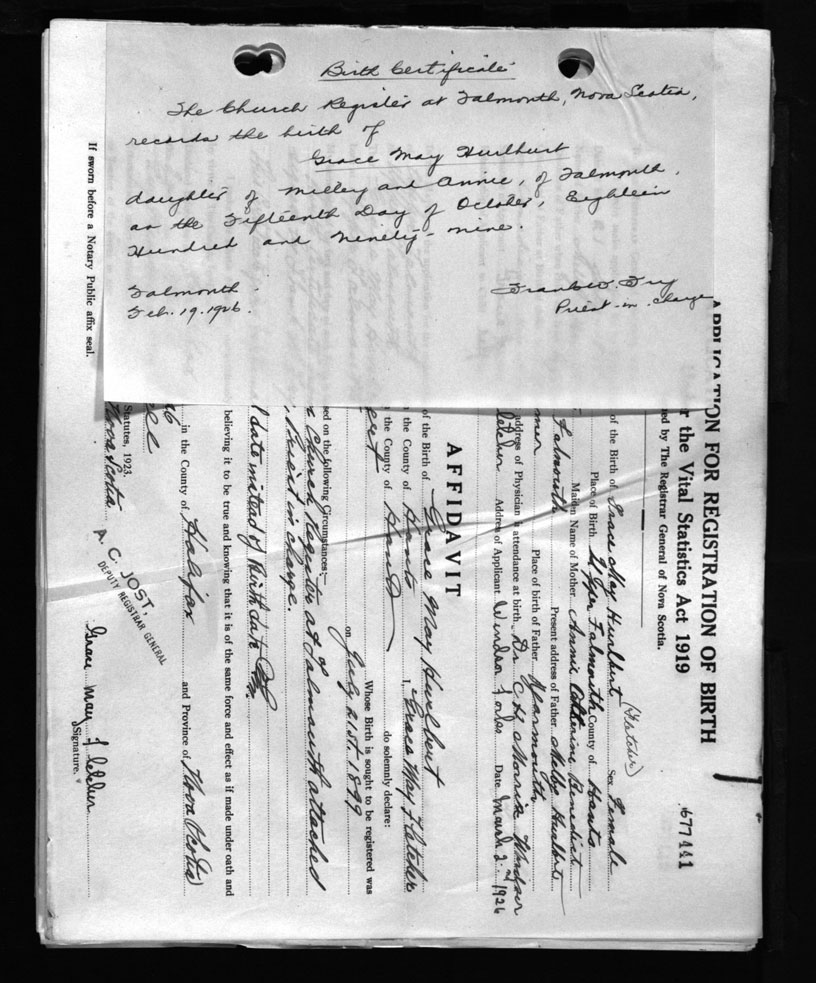 Birth Certificate
The Church Register at Falmouth, Nova Scotia,
records the birth of
Grace May Hurlburt
daughter of Milley and Annie, of Falmouth,
on the Fifteenth Day of October, Eighteen
Hundred and Ninety-nine.
Falmouth
Feb. 19. 1926.
Priest-in-charge
APPLICATION FOR REGISTRATION OF BIRTH
r the Vital Statistics Act 1919
ed by The Registrar General of Nova Scotia.
677441
(Fletcher)
of the Birth of Grace May Hurlbert Sex Female
Place of Birth Upper Falmouth County of Hants
Maiden Name of Mother Annie Catherine Benedict
Falmouth Present address of Father Hurlbert
mer Place of birth of Father Yarmouth
address of Physician in attendance at birth Dr C H Morris Windsor
letcher Address of Applicant Windsor Forks Date March 2nd 1926
AFFIDAVIT
of the Birth of Grace May Hurlbert
the County of Hants I, Grace May Fletcher
the County of Hants do solemnly declare:
bert Whose Birth is sought to be registered was
on July 21st. 1899
sed on the following Circumstances:
Church Register at Falmouth attached
Priest in charge.
date instead of birth date
believing it to be true and knowing that it is of the same force and effect as if made under oath and
Statutes, 1923.
26 in the County of Halifax and Province of Nova Scotia
Nova Scotia
A. C. JOST,
DEPUTY REGISTRAR GENERAL
Grace May Fletcher
Signature.
If sworn before a Notary Public affix seal.